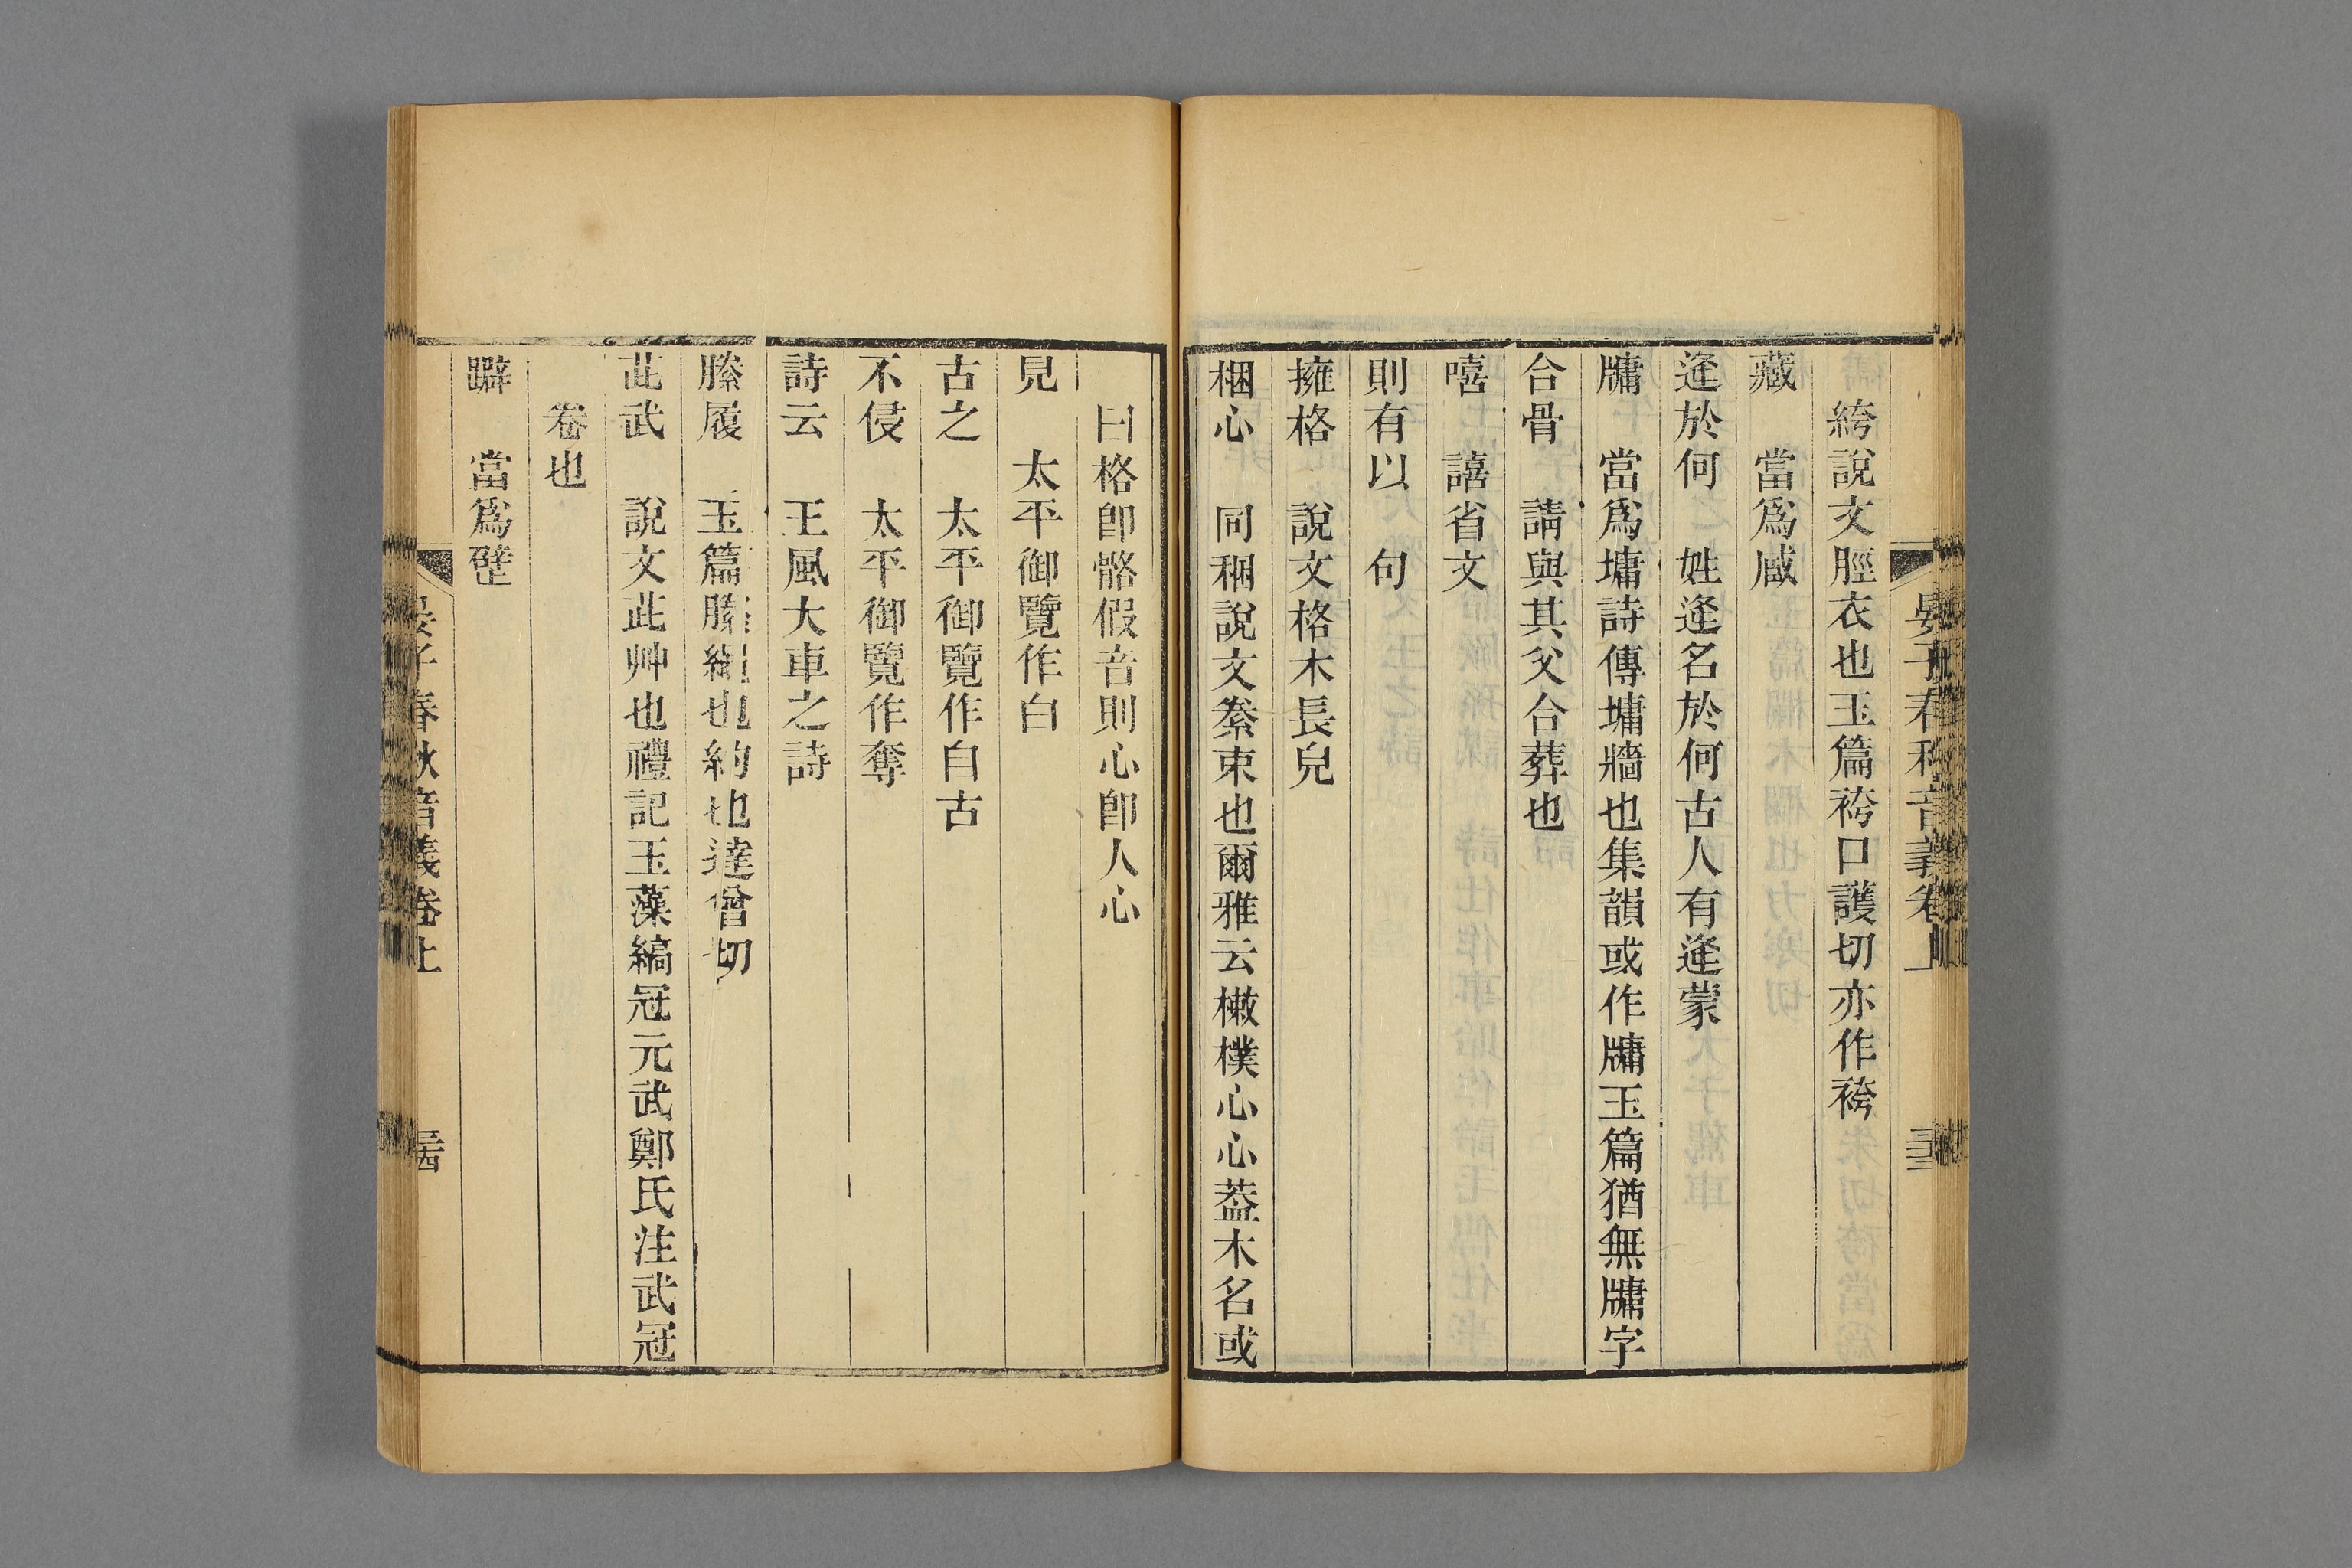 晏子春秋音義卷上
三三
絝說文脛衣也玉篇袴口護切亦作袴
藏　當爲臧
逢於何　姓逢名於何古人有逢蒙
牗　當爲墉詩傳墉牆也集韻或作牗玉篇猶無牗字
合骨　請與其父合葬也
嘻　譆省文
則有以　句
擁格　說文格木長皃
梱心　同稇說文絭束也爾雅云樕樸心心葢木名或
曰格卽骼假音則心卽人心
見　太平御覽作白
古之　太平御覽作自古
不侵　太平御覽作奪
詩云　王風大車之詩
縢履　玉篇縢繩也約也達曾切
茈武　說文茈艸也禮記玉藻縞冠元武鄭氏注武冠
卷也
躃　當爲壁
晏子春秋音義卷上
三四